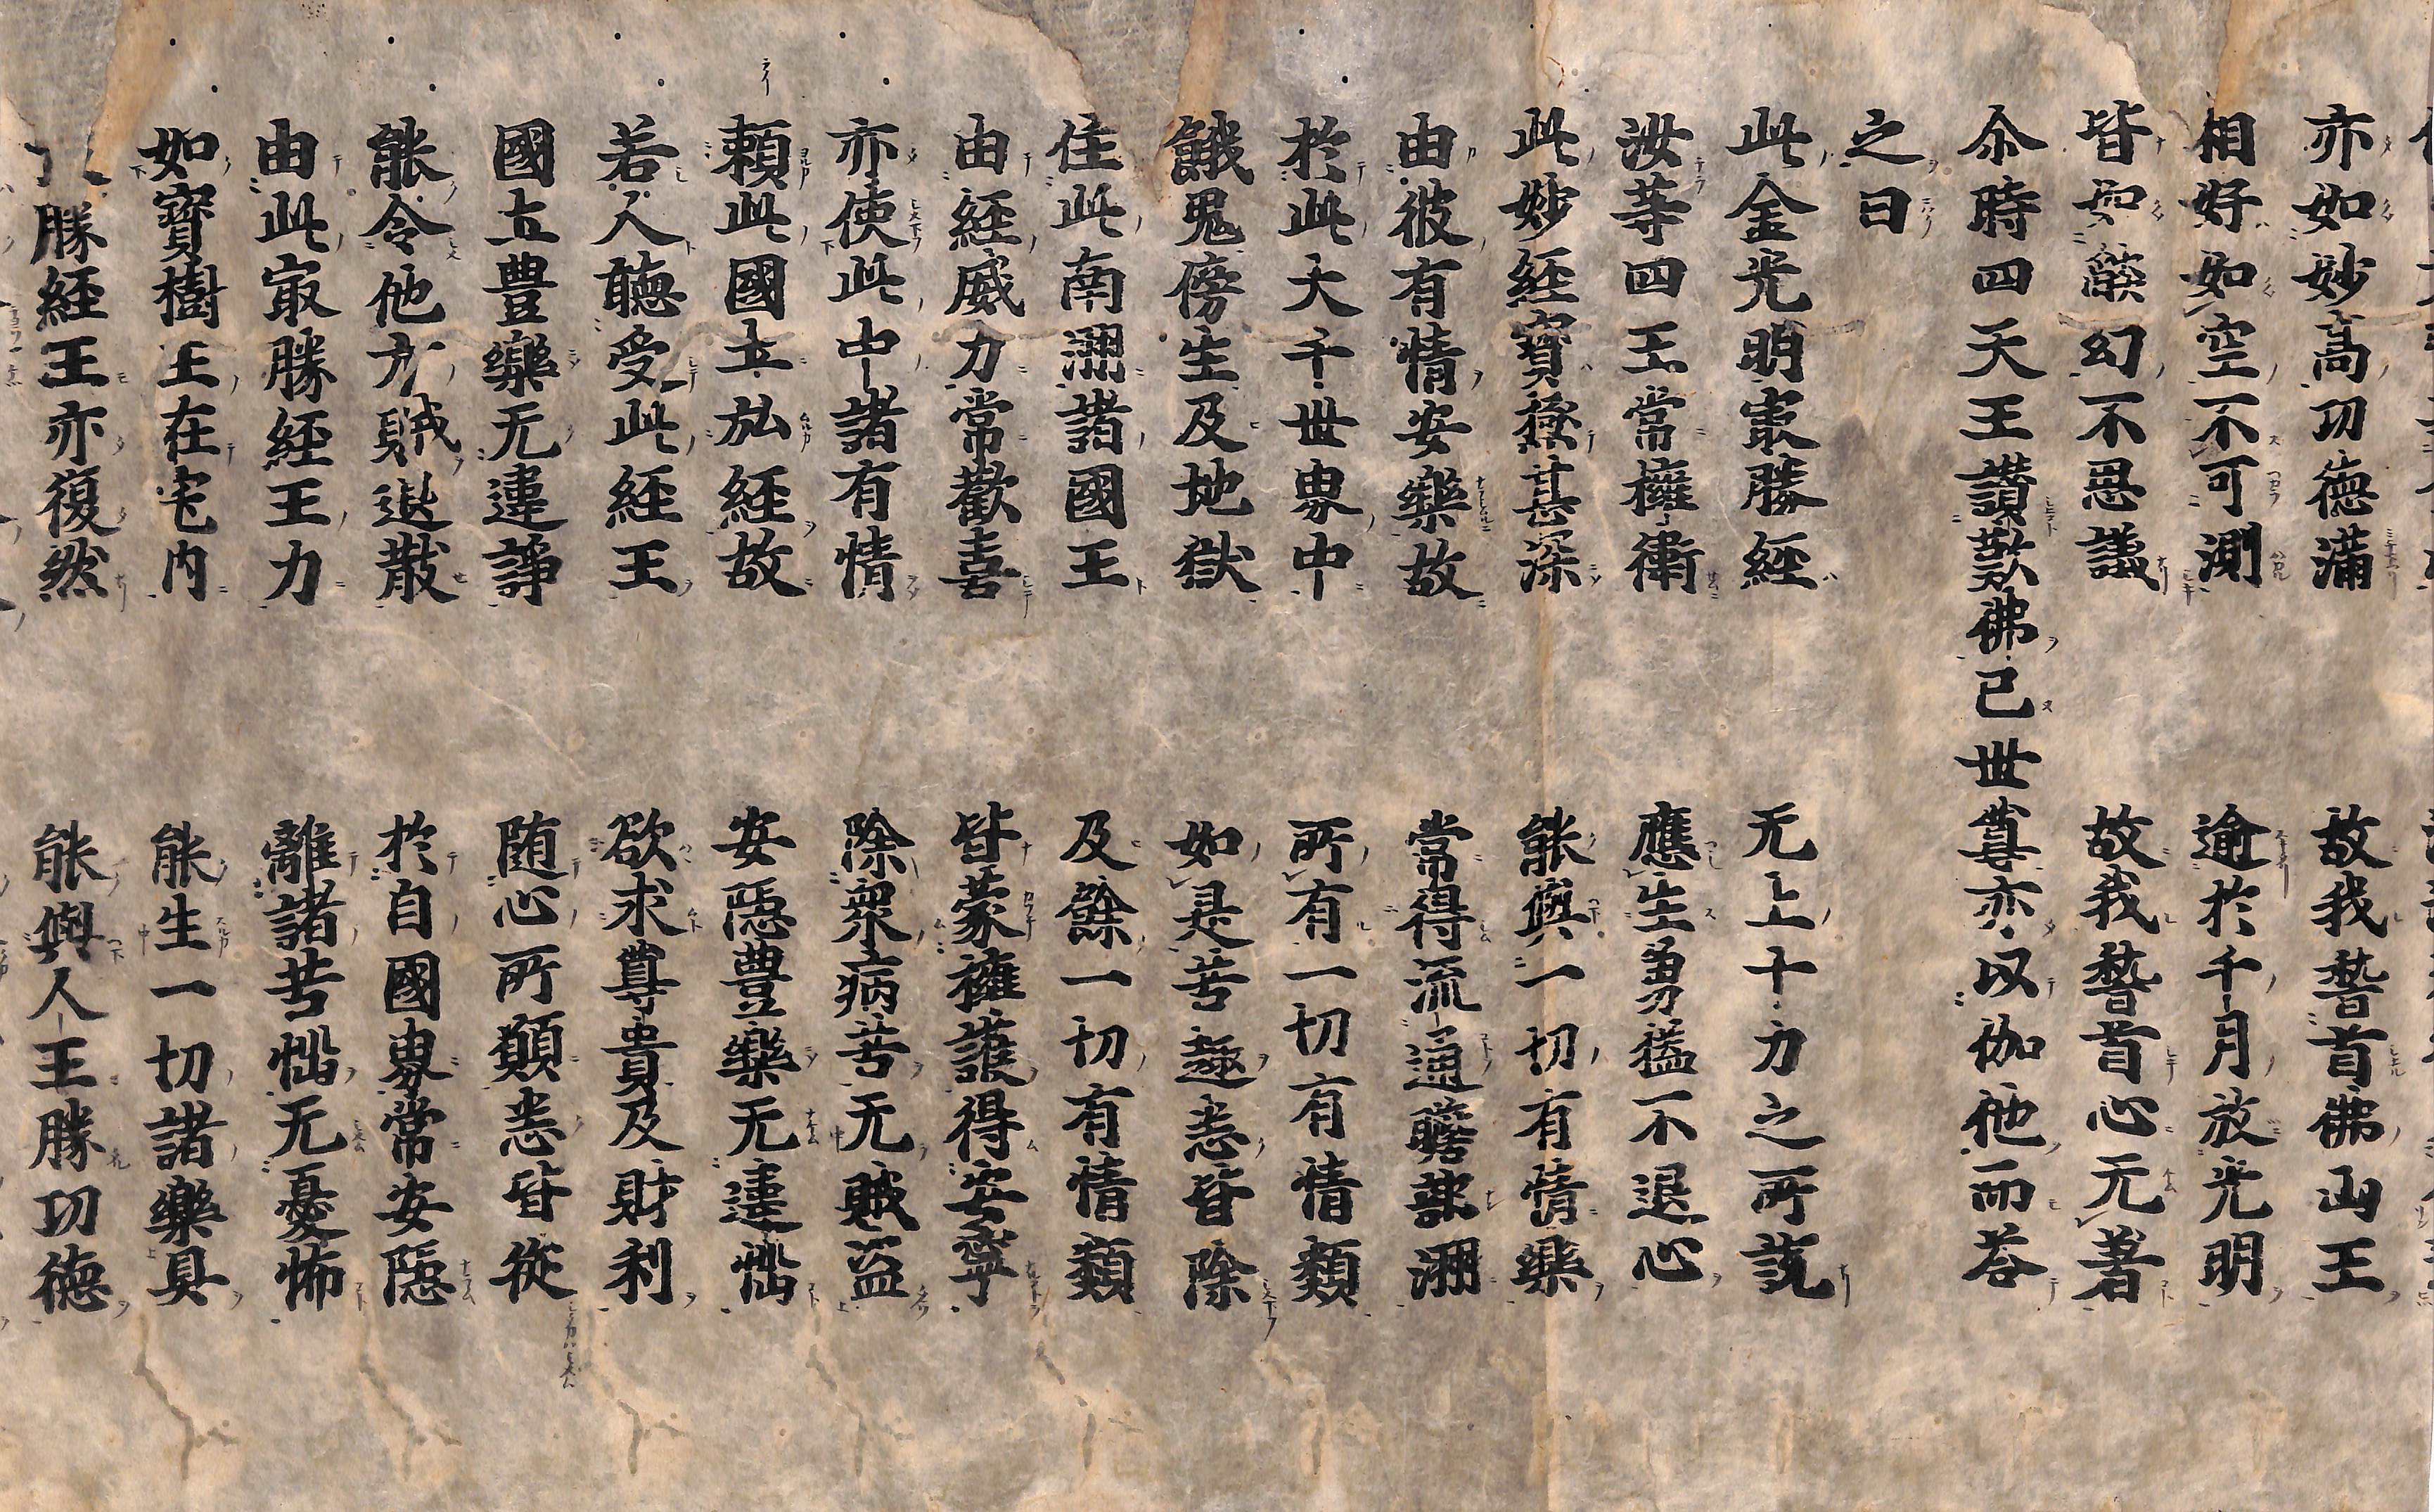 亦如妙高功德滿　故我誓首佛山王
相好如空不可測　逾於千月放光明
皆如㷔幻不思議　故我誓首心无著
尒時四天王讚歎佛已世尊亦以伽他而荅
之曰
此金光明㝡勝經　无上十力之所說
汝等四王常擁衛　應生勇猛不退心
此妙經寶極甚深　能與一切有情樂
由彼有情安樂故　常得流通贍部洲
於此大千世界中　所有一切有情類
餓鬼傍生及地獄　如是苦趣悉皆除
住此南洲諸國王　及餘一切有情類
由經威力常歡喜　皆蒙擁護得安寧
亦使此中諸有情　除眾病苦无賊盜
賴此國土弘經故　安隱豐樂无違惱
若人聽受此經王　欲求尊貴及財利
國土豐樂无違諍　隨心所願悉皆從
能令他方賊退散　於自國界常安隱
由此㝡勝經王力　離諸苦惱无憂怖
如寶樹王在宅內　能生一切諸樂具
勝經王亦復然　能與人王勝功德